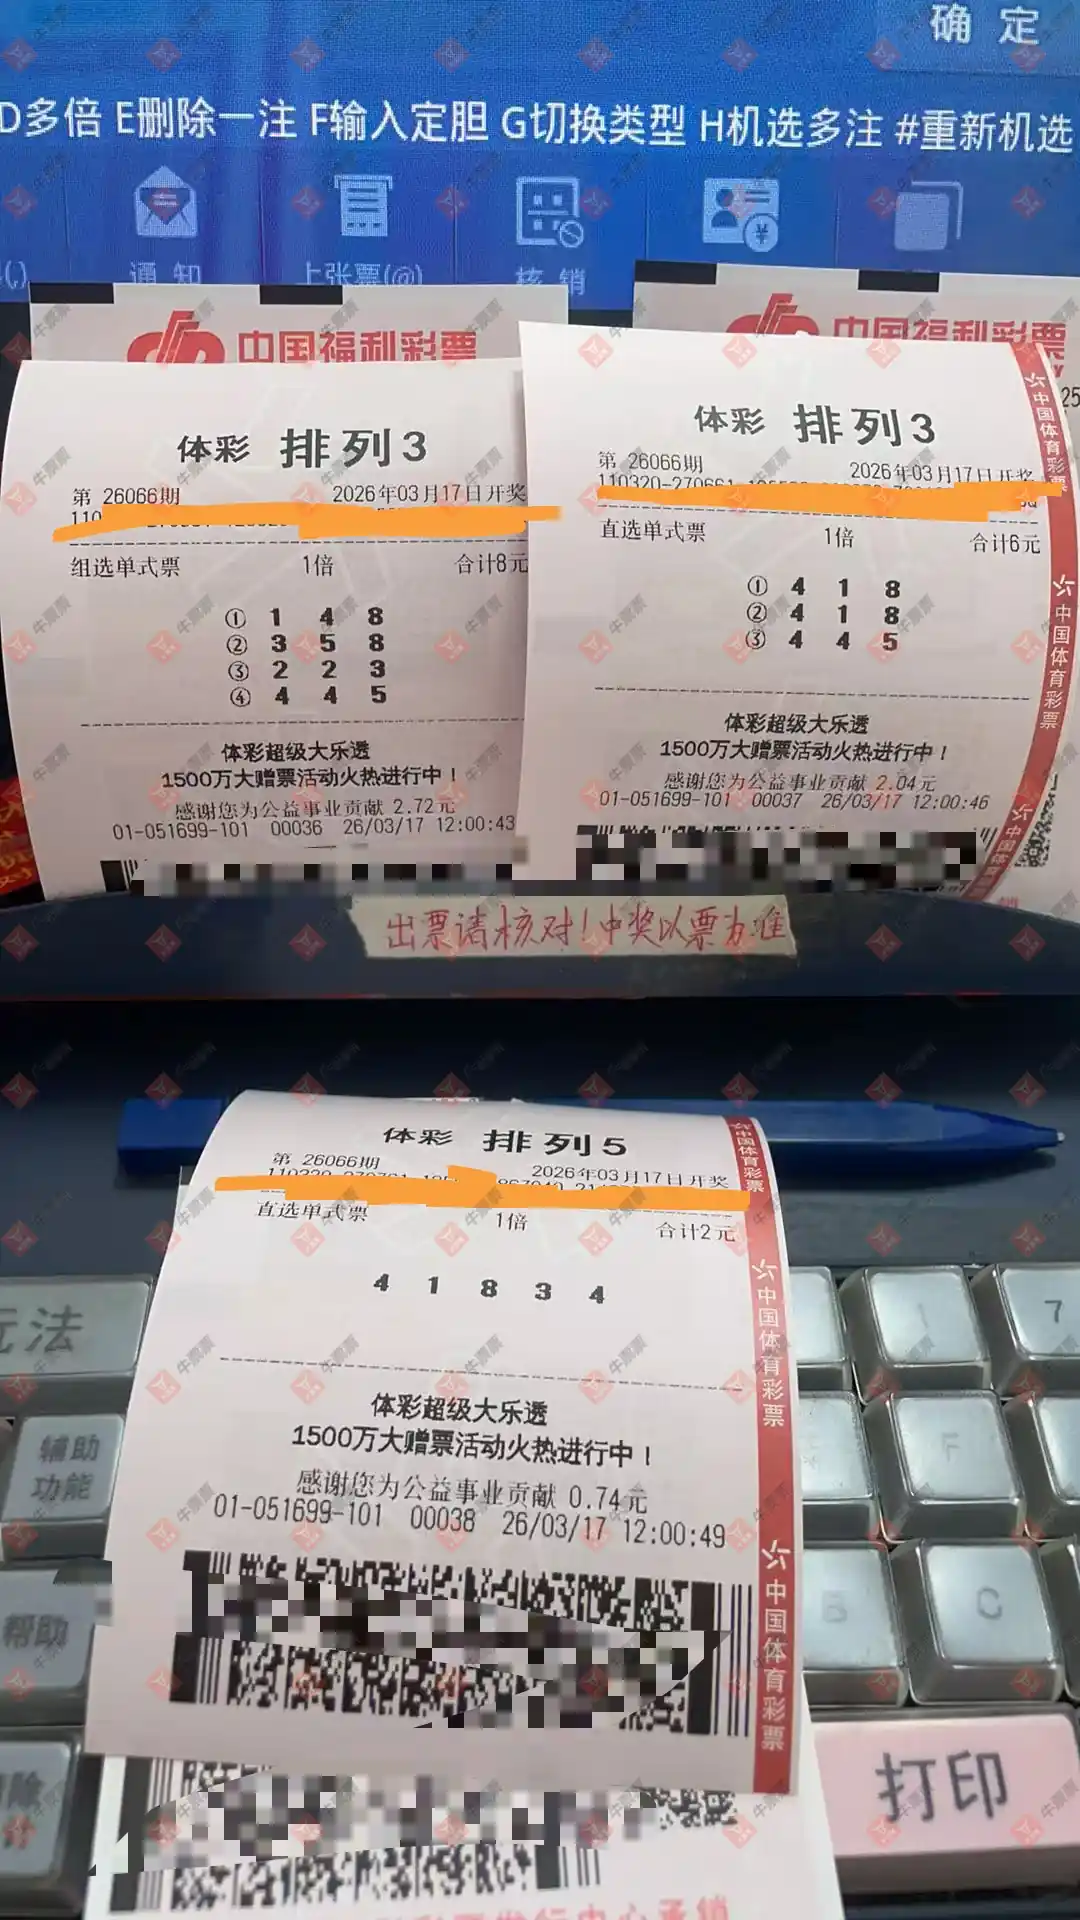 确 定
D多倍 E删除一注 F输入定胆 G切换类型 H机选多注 #重新机选
通 知
上张票(@)
核 销
中国福利彩票
中国福利彩票
体彩 排列3
第 26066期
2026年03月17日开奖
组选单式票
1倍
合计8元
① 1 4 8
② 3 5 8
③ 2 2 3
④ 4 4 5
体彩超级大乐透
1500万大赠票活动火热进行中！
感谢您为公益事业贡献 2.72元
01-051699-101 00036 26/03/17 12:00:43
体彩 排列3
第 26066期
2026年03月17日开奖
直选单式票
1倍
合计6元
① 4 1 8
② 4 1 8
③ 4 4 5
体彩超级大乐透
1500万大赠票活动火热进行中！
感谢您为公益事业贡献 2.04元
01-051699-101 00037 26/03/17 12:00:46
中国体育彩票
中国体育彩票
出票请核对！中奖以票为准
体彩 排列5
第 26066期
2026年03月17日开奖
直选单式票
1倍
合计2元
4 1 8 3 4
体彩超级大乐透
1500万大赠票活动火热进行中！
感谢您为公益事业贡献 0.74元
01-051699-101 00038 26/03/17 12:00:49
中国体育彩票
中国体育彩票
中国体育彩票
玩法
辅助
功能
帮助
7
F
B
C
打印
牛票票